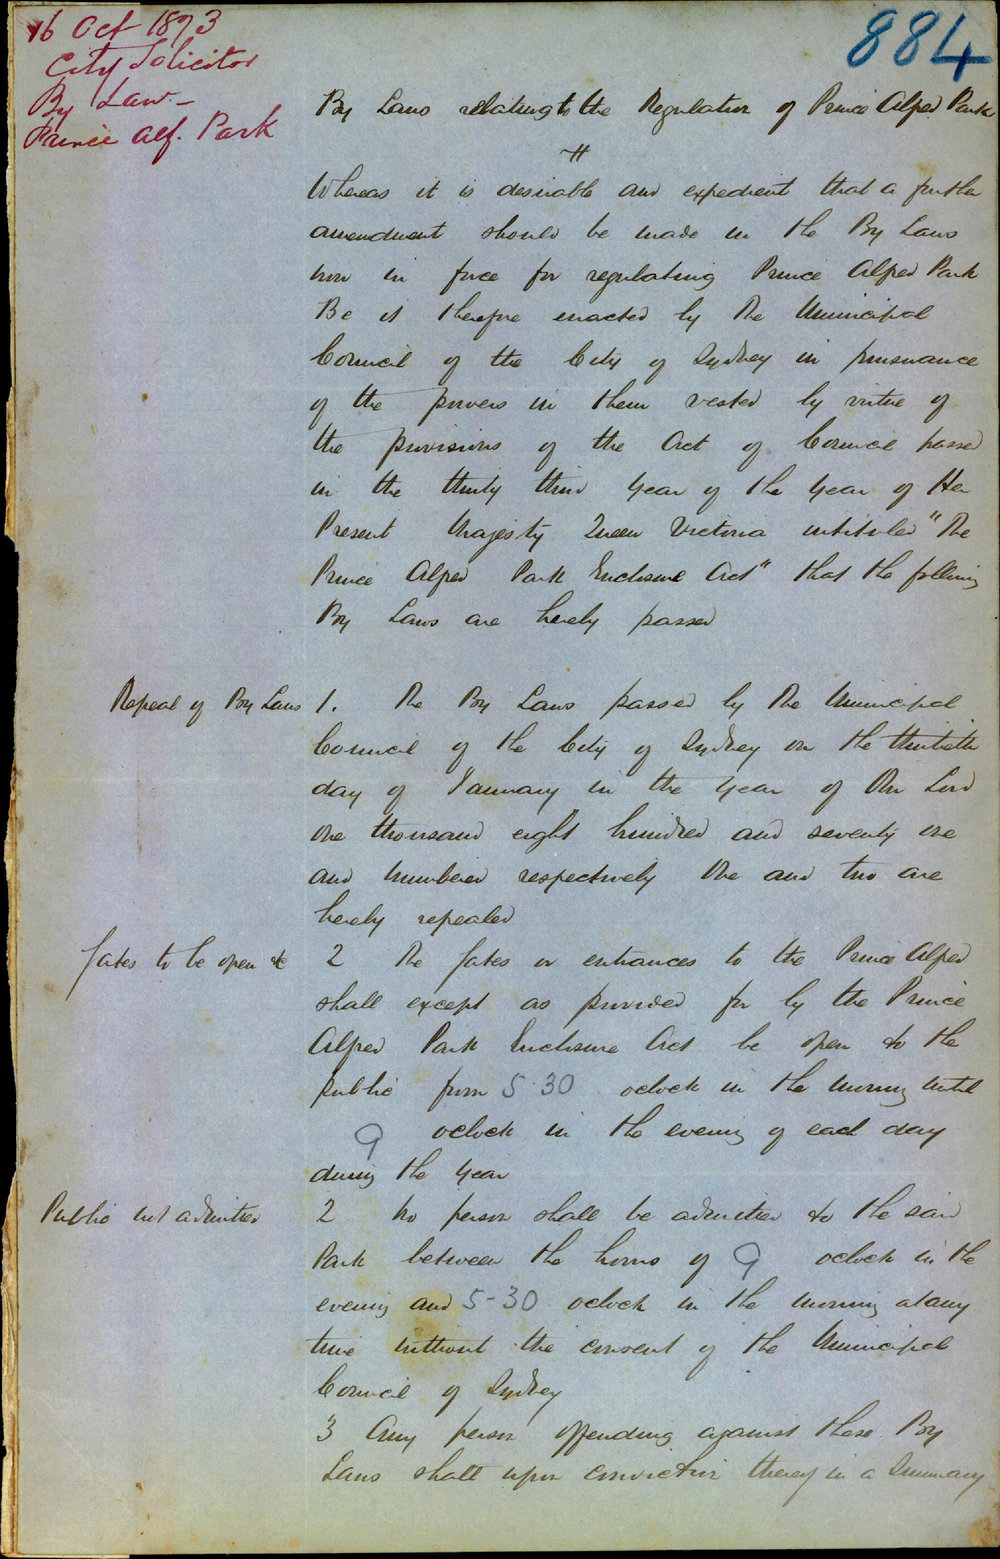 16 Oct 1873
City Solicitor
By Law -
Prince Alf. Park
884
By Laws relating to the Regulation of Prince Alfred Park
Whereas it is desirable and expedient that a further
amendment should be made in the By Laws
now in force for regulating Prince Alfred Park
Be it therefore enacted by the Municipal
Council of the City of Sydney in pursuance
of the powers in them vested by virtue of
the provisions of the Act of Council passed
in the thirty third year of the year of Her
Present Majesty Queen Victoria intituled "The
Prince Alfred Park Enclosure Act" that the following
By Laws are hereby passed
Repeal of By Laws 1. The By Laws passed by the Municipal
Council of the City of Sydney on the thirtieth
day of January in the year of Our Lord
One thousand eight hundred and seventy one
and numbered respectively One and two are
hereby repealed
Gates to be open &c 2 The Gates or entrances to the Prince Alfred
shall except as provided for by the Prince
Alfred Park Enclosure Act be open to the
public from 5.30 oclock in the morning until
9 oclock in the evening of each day
during the year
Public not admitted 2 No person shall be admitted to the said
Park between the hours of 9 oclock in the
evening and 5-30 oclock in the morning at any
time without the consent of the Municipal
Council of Sydney
3 Any person offending against these By
Laws shall upon conviction thereof in a Summary